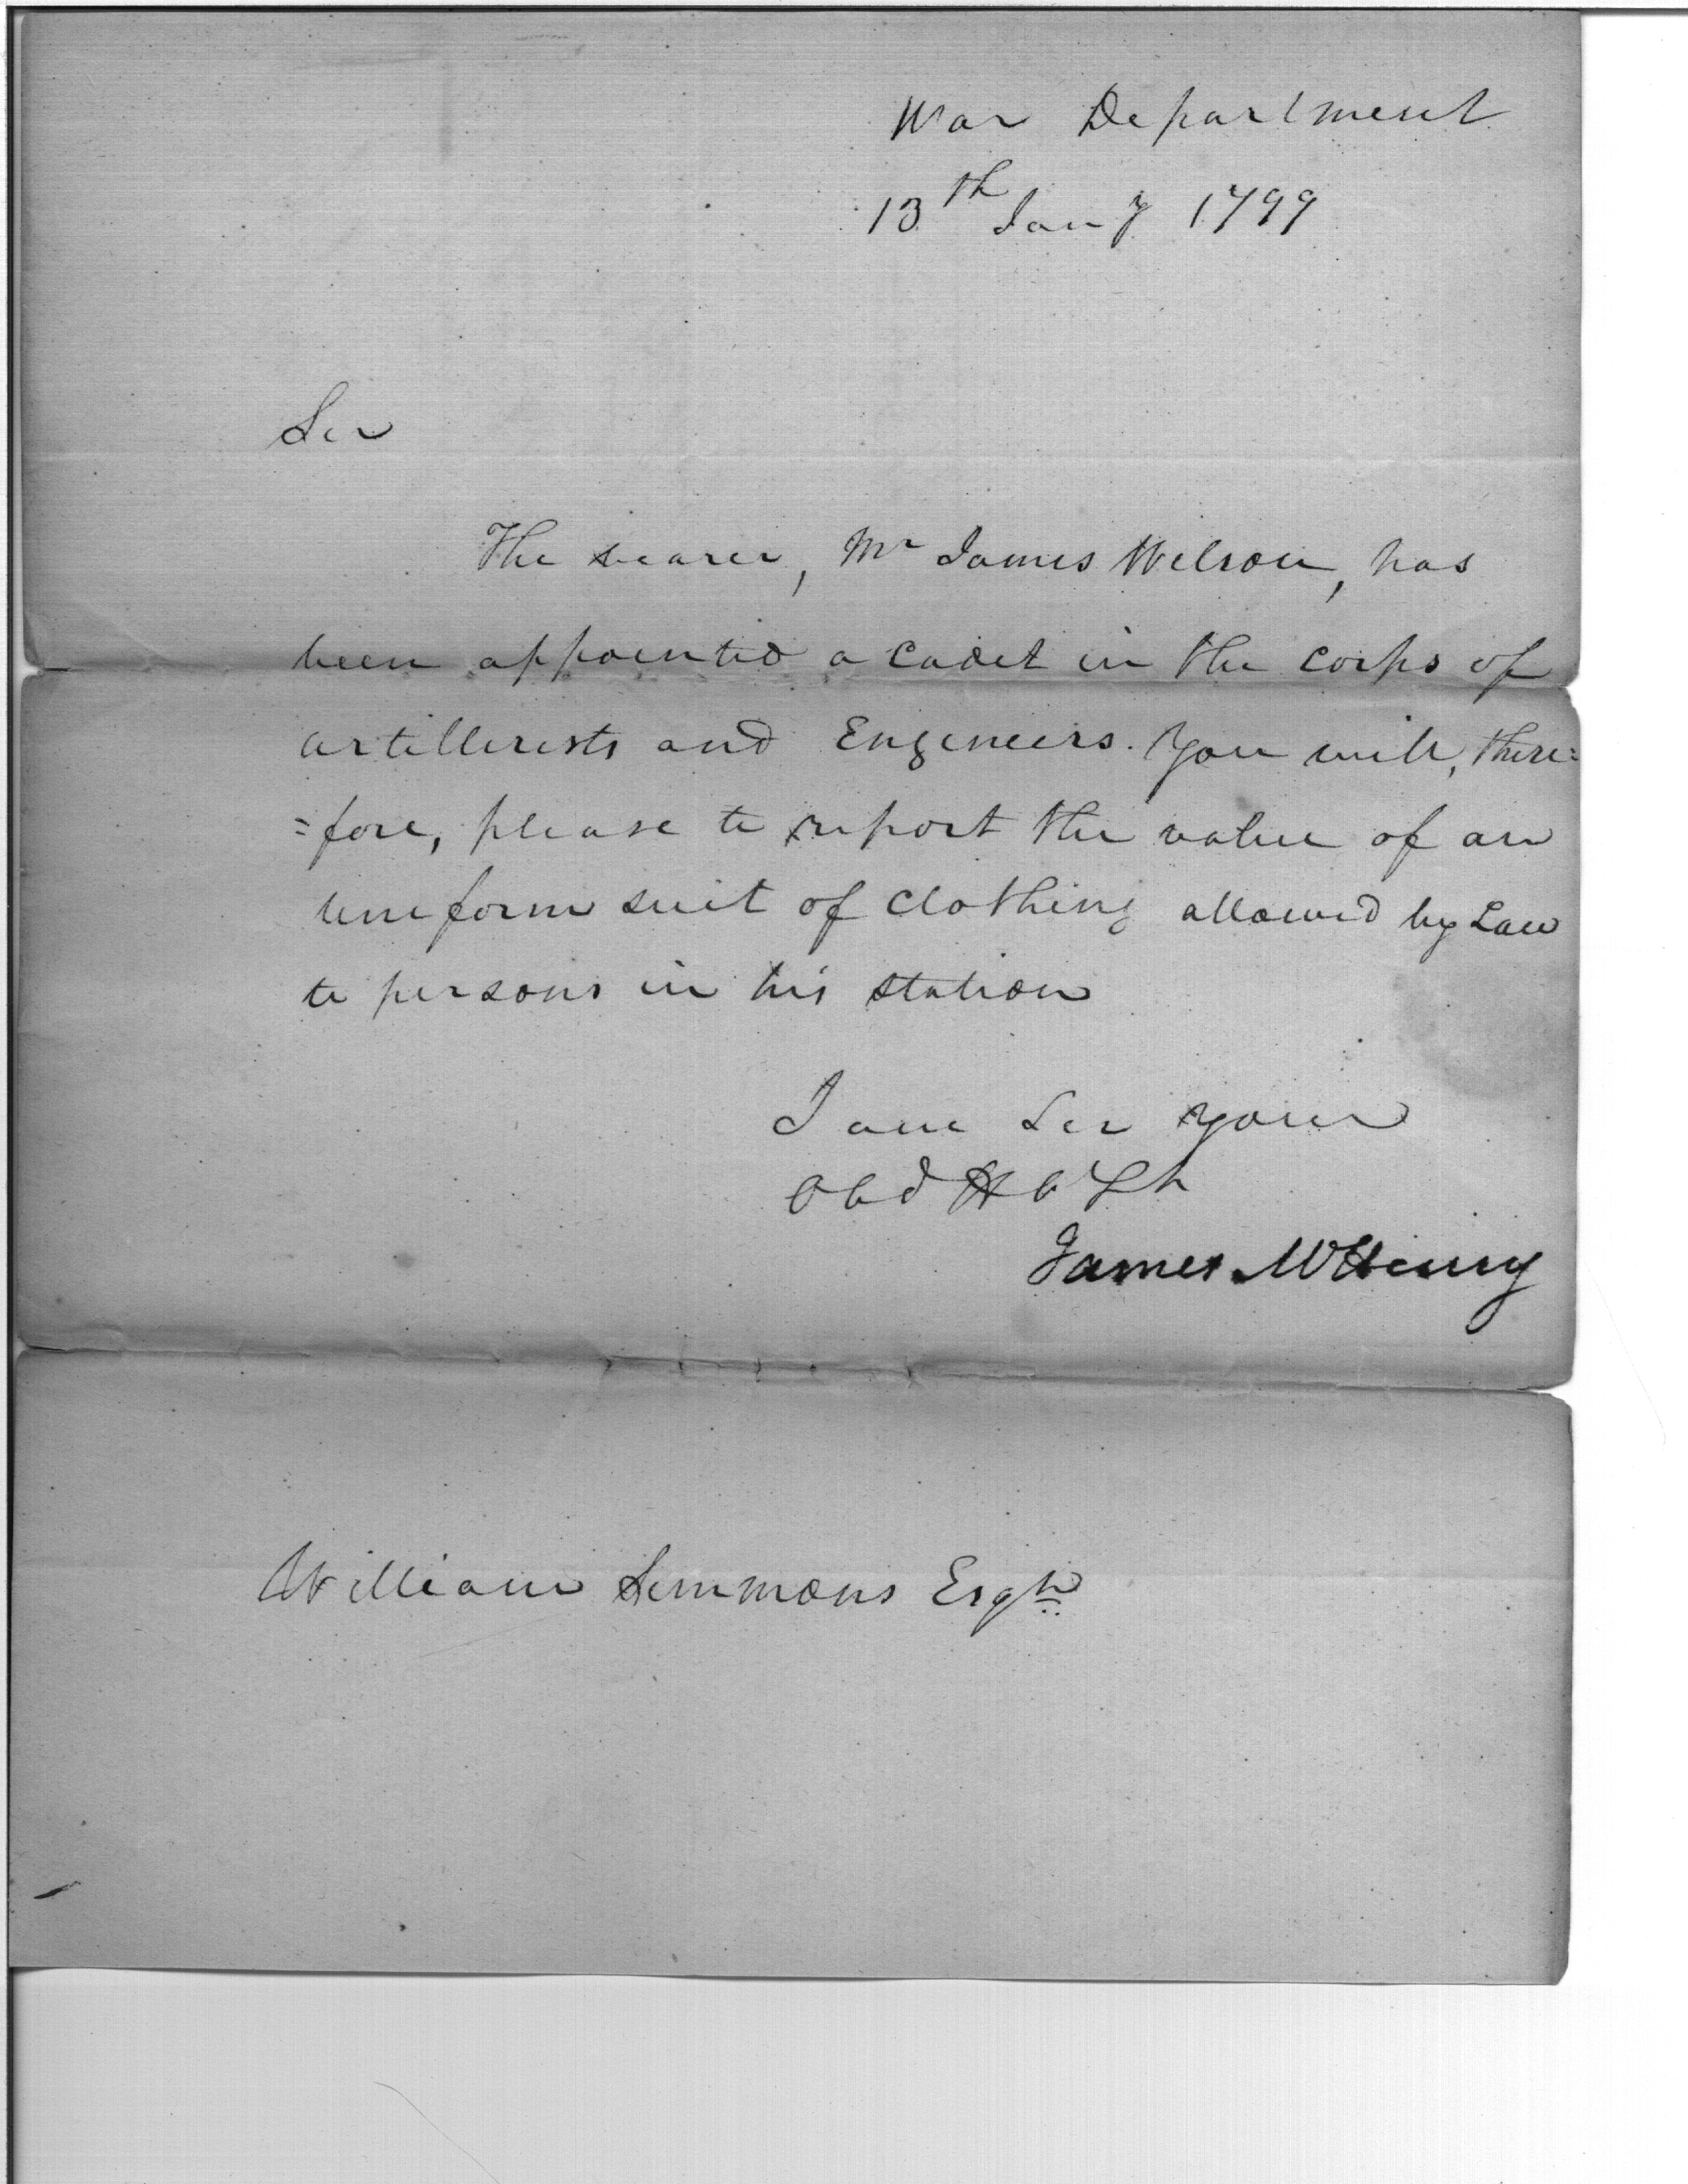 War Department
13th Jany 1799
Sir
The bearer, Mr James Wilson, has
been appointed a Cadet in the Corps of
artillerists and Engineers. You will, there=
=fore, please to report the value of an
uniform suit of clothing allowed by Law
to persons in his station
I am Sir your
Obd H
James McHenry
William Simmons Esqr